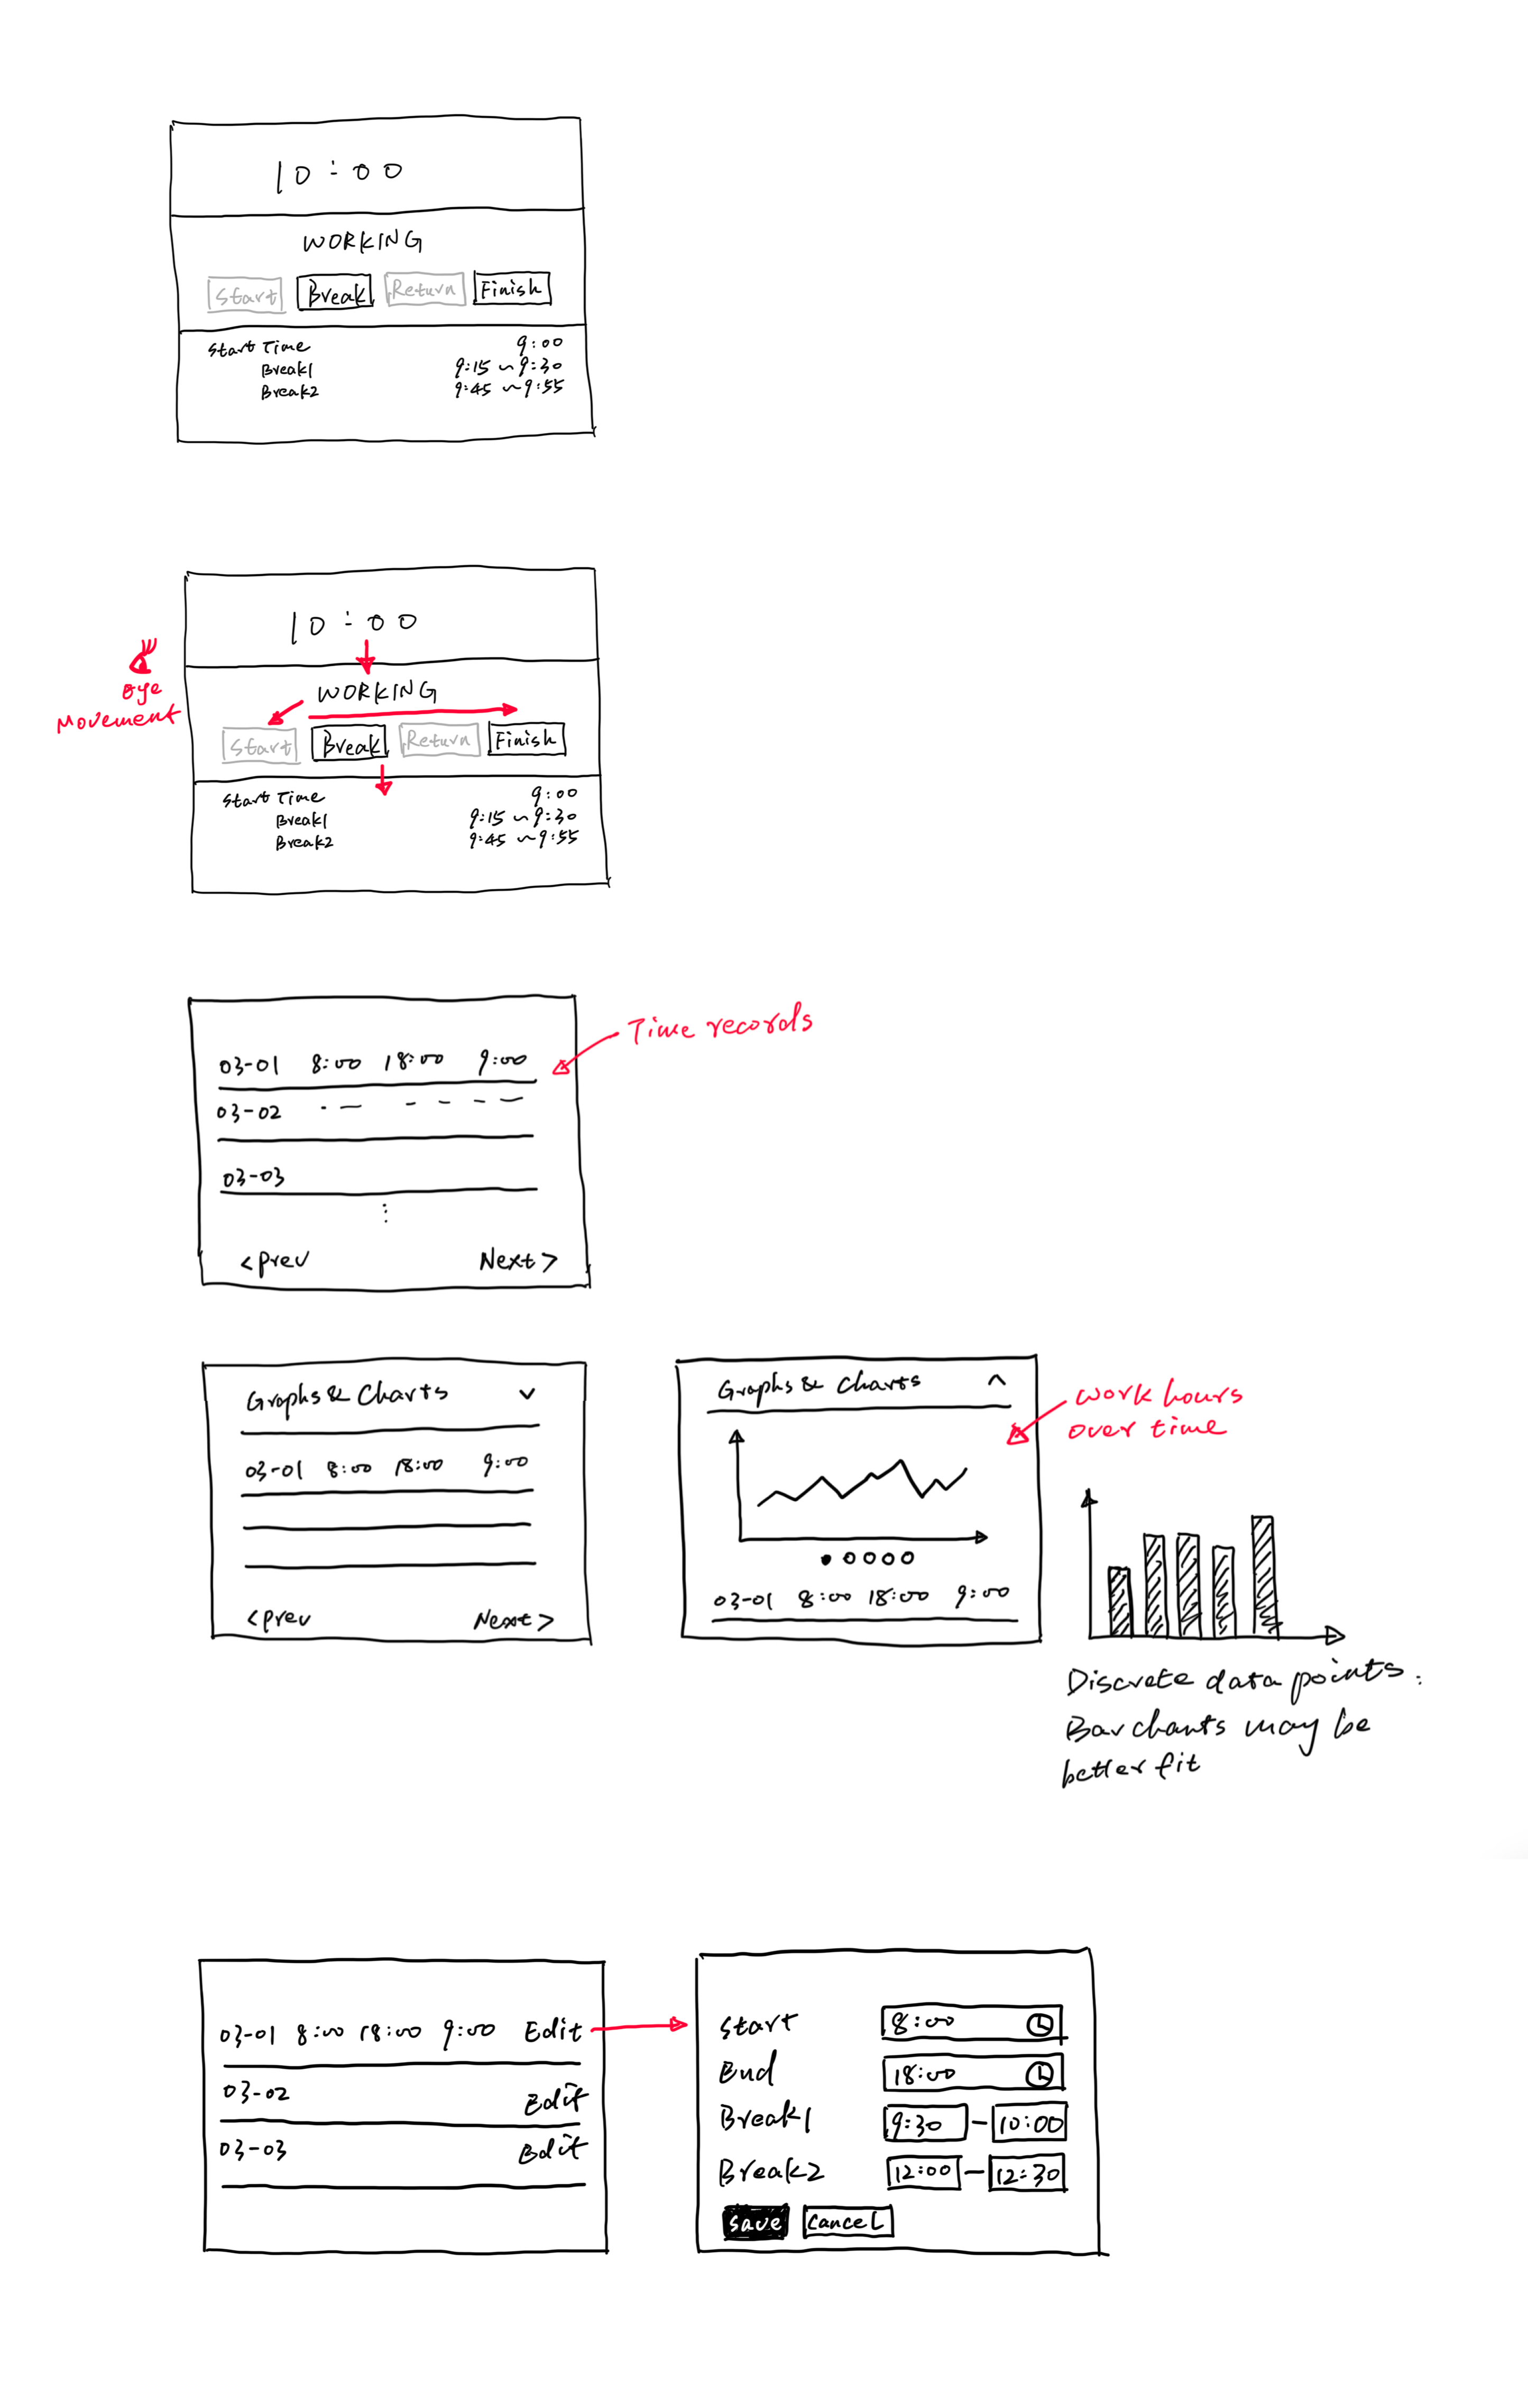 10:00
WORKING
Start Break Return Finish
Start Time 9:00
Break1 9:15 ~ 9:30
Break2 9:45 ~ 9:55
10:00
eye
Movement
WORKING
Start Break Return Finish
Start Time 9:00
Break1 9:15 ~ 9:30
Break2 9:45 ~ 9:55
Time records
03-01 8:00 18:00 9:00
03-02
03-03
<Prev Next>
Graphs & Charts
03-01 8:00 18:00 9:00
<Prev Next>
Graphs & Charts
03-01 8:00 18:00 9:00
Work hours
over time
Discrete data points.
Bar charts may be
better fit
03-01 8:00 18:00 9:00 Edit
03-02 Edit
03-03 Edit
Start 8:00
End 18:00
Break1 9:30 - 10:00
Break2 12:00 - 12:30
Save Cancel